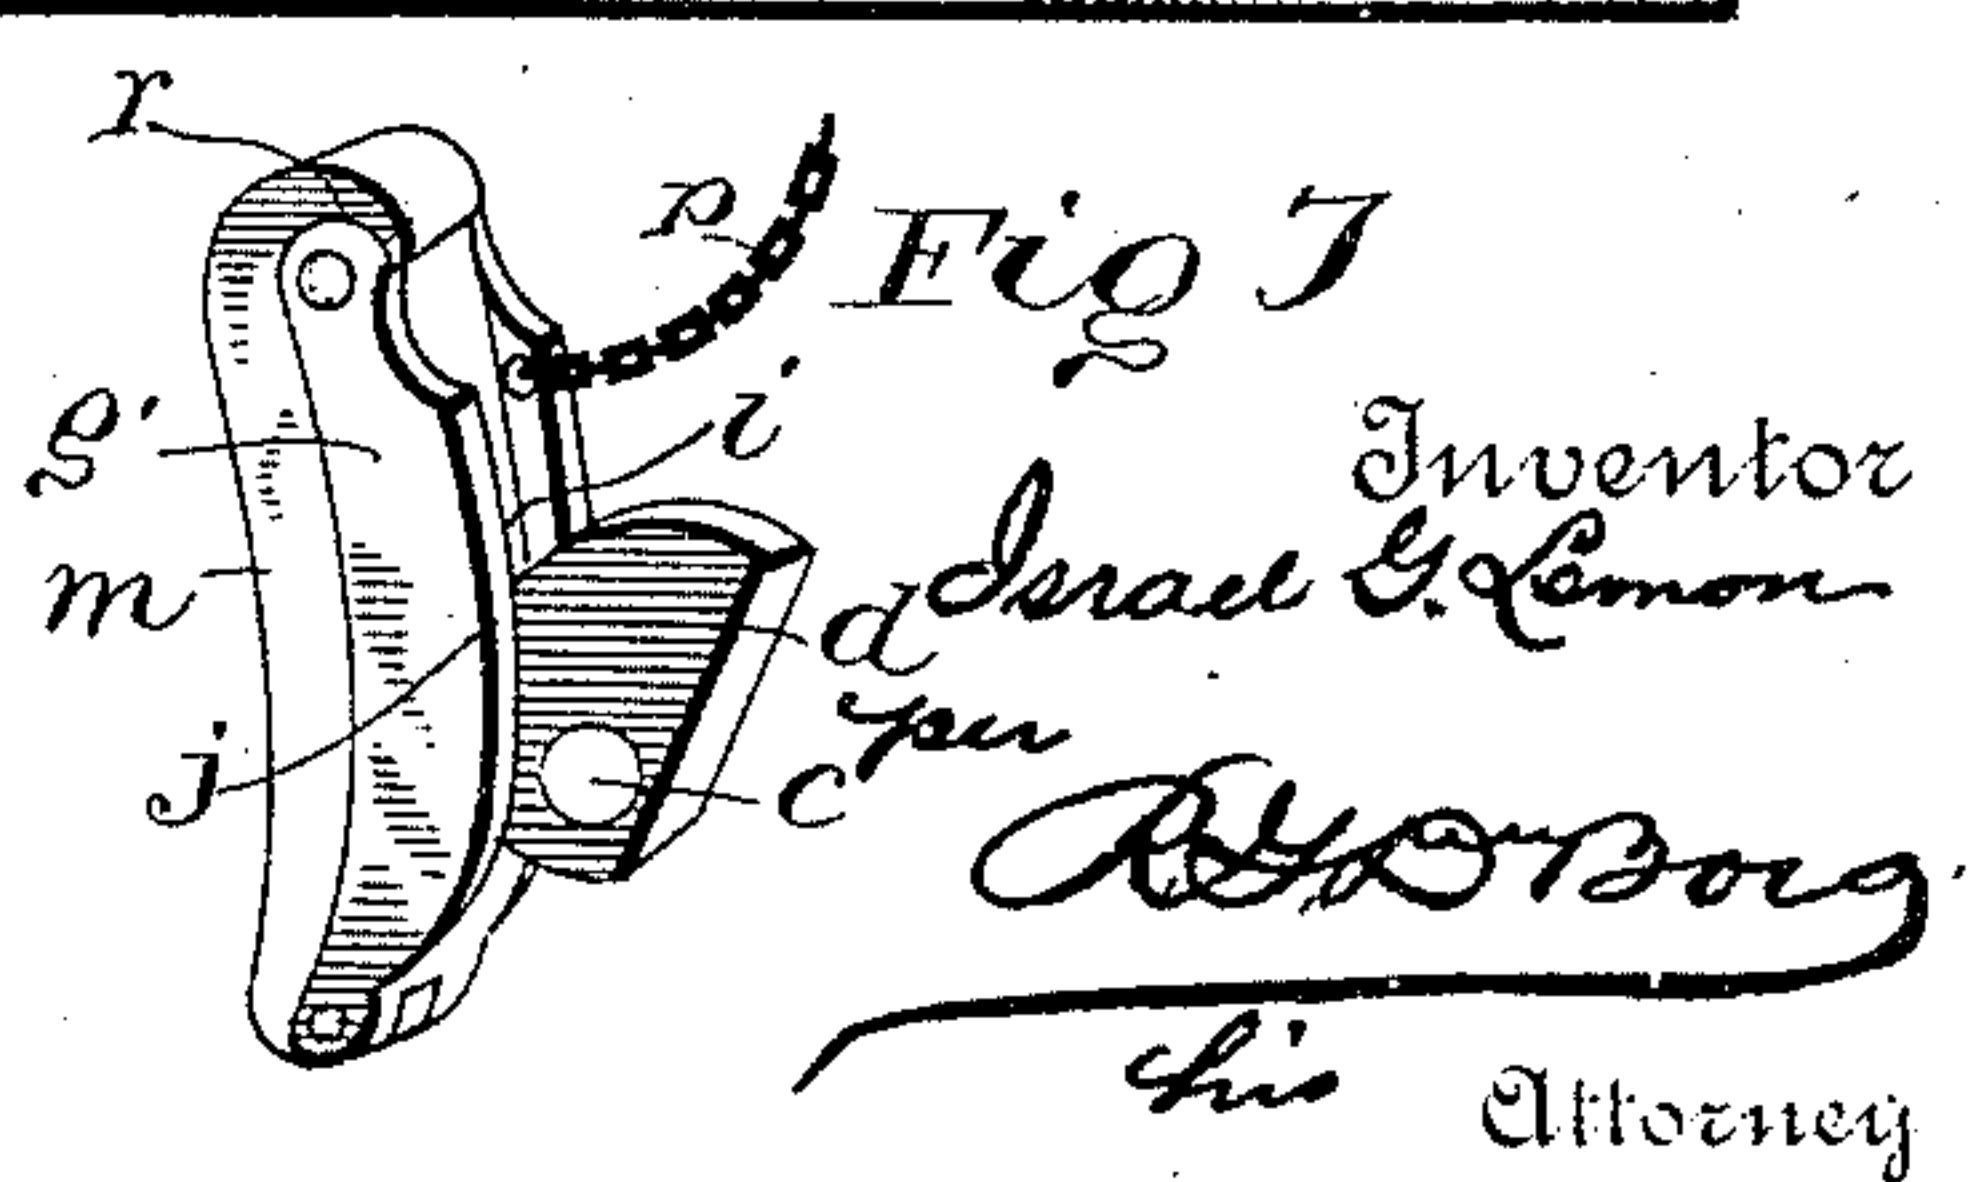 r
p
Fig 7
g'
i
Inventor
m
Israel G. Lemon
d
per
j
c
his
Attorney